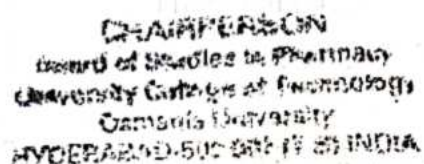 CHAIRPERSON
Board of Studies in Pharmacy
University College of Technology
Osmania University
HYDERABAD-500 007 INDIA